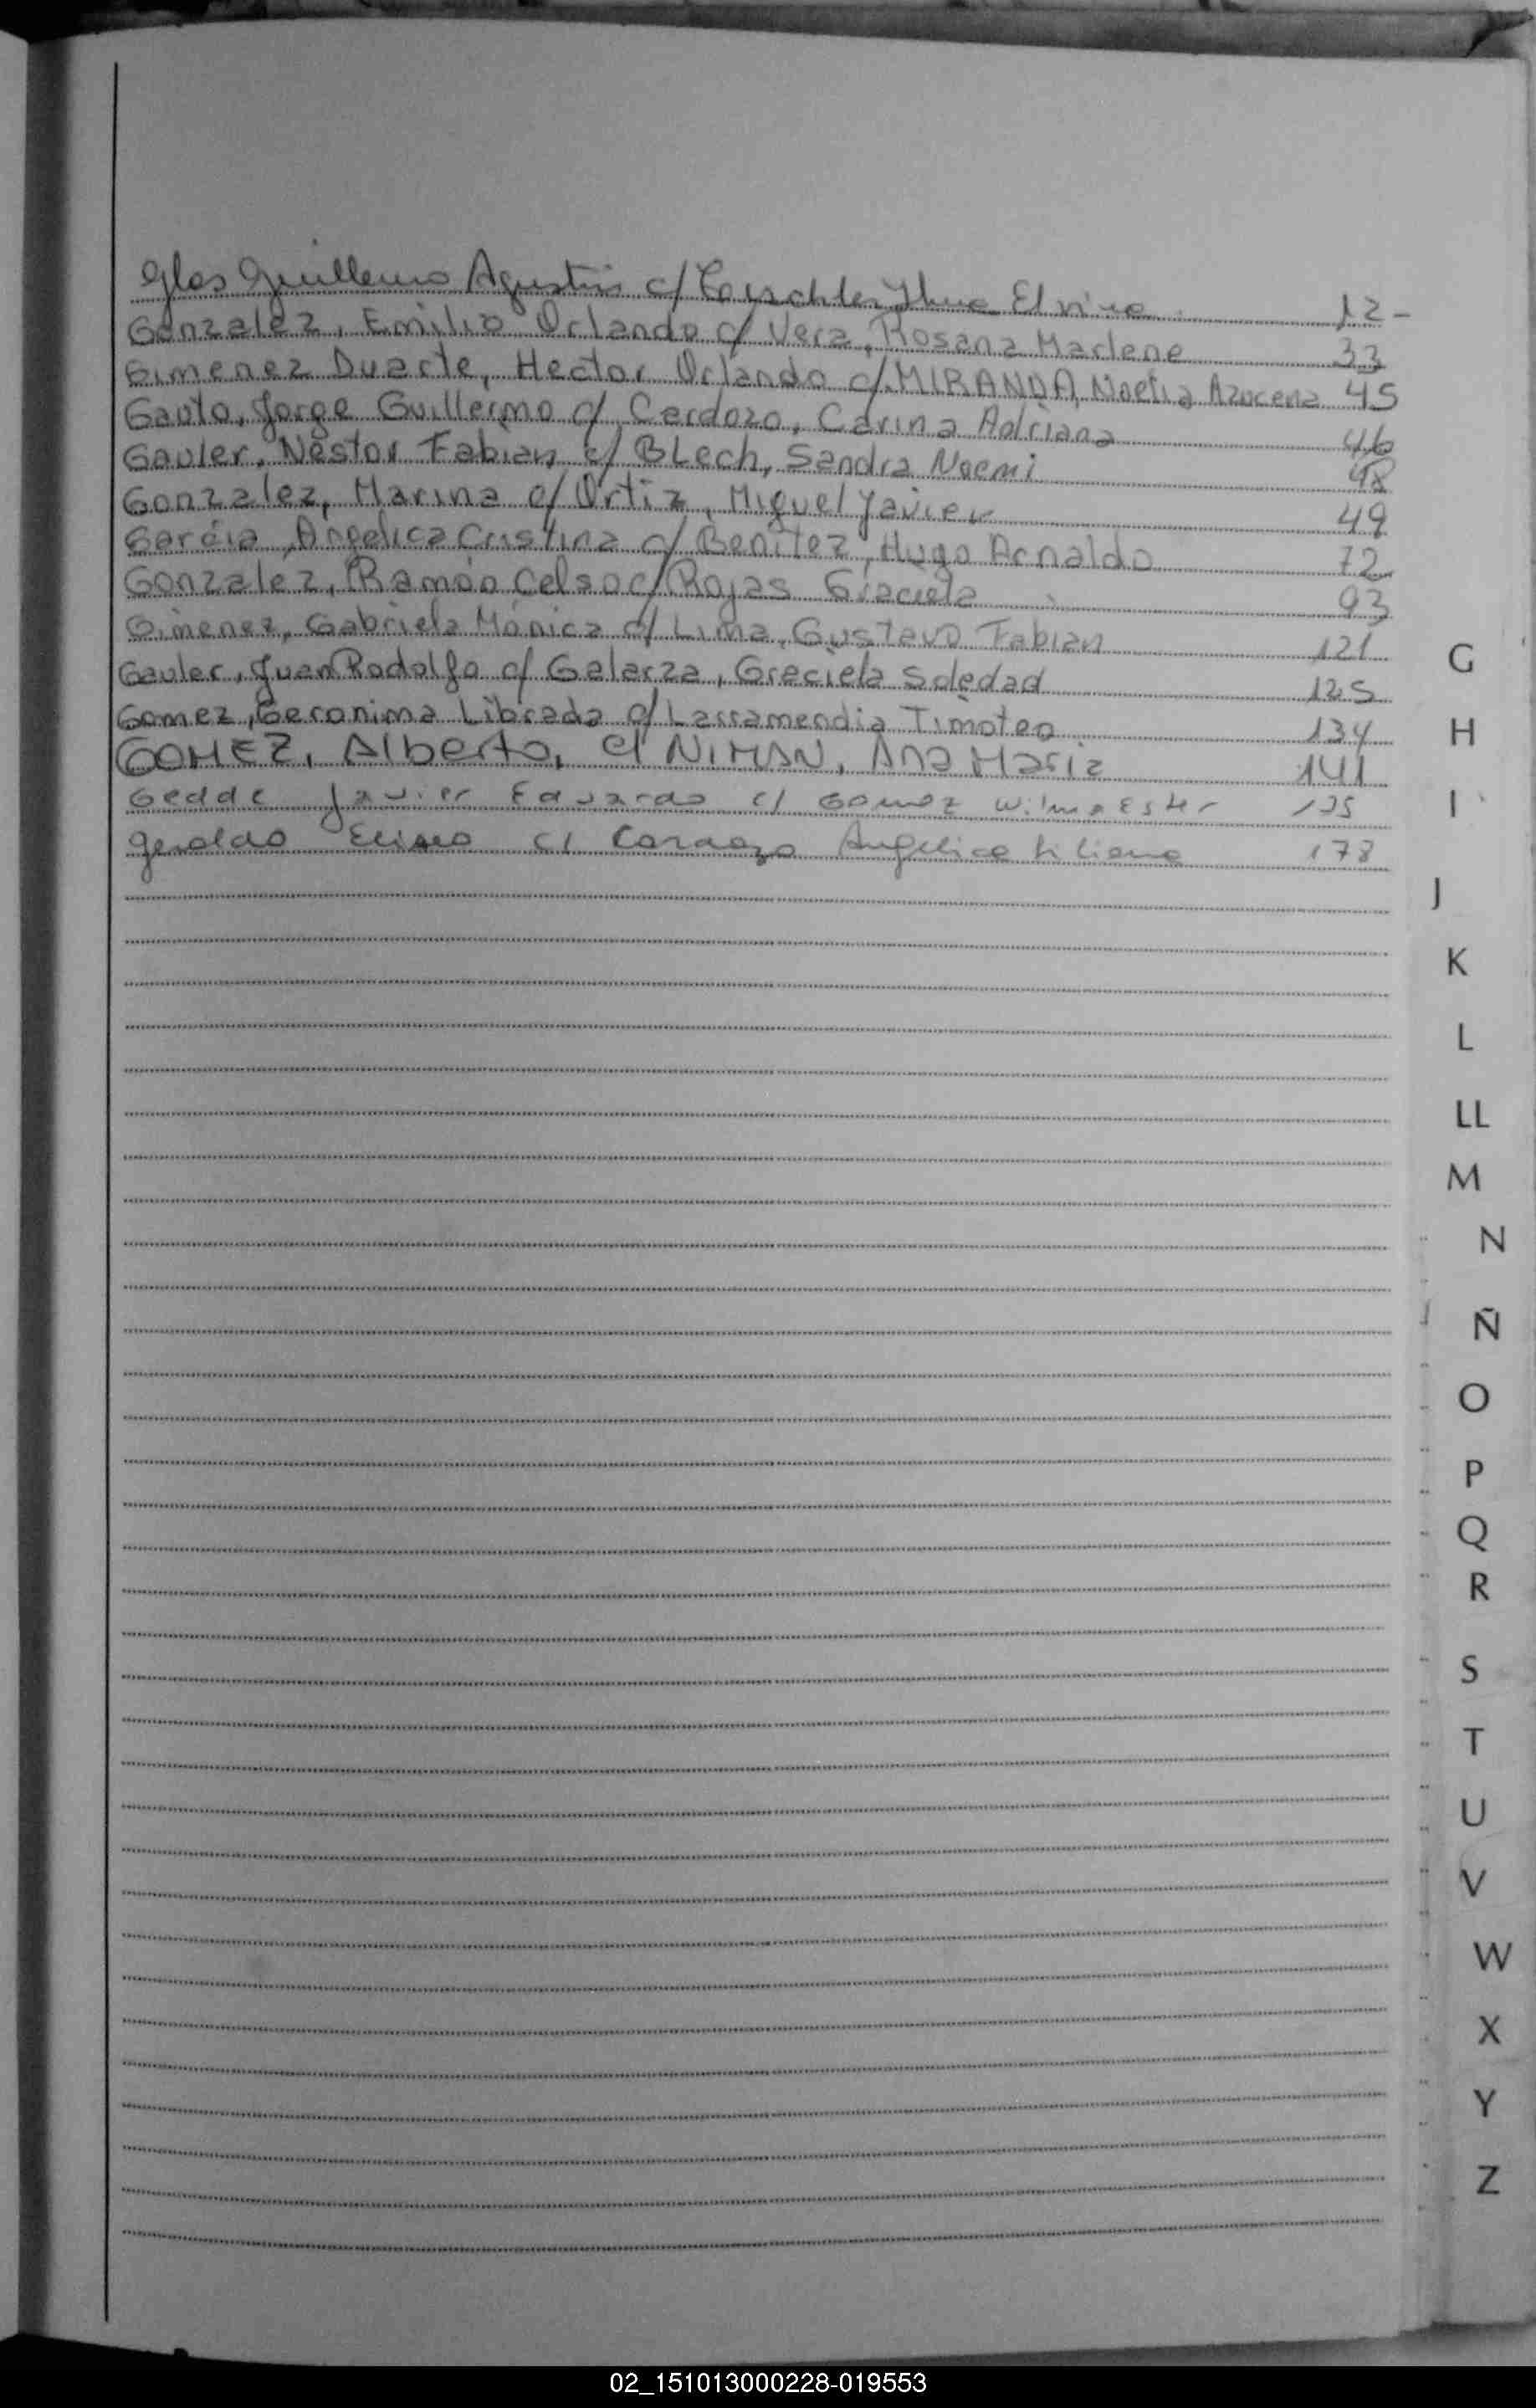 Glos Guillermo Agustin c/ Elvira 12-
Gonzalez, Emilio Orlando c/ Vera, Rosana Marlene 33
Gimenez Duarte, Hector Orlando c/ MIRANDA, Noelia Azucena 45
Gauto, Jorge Guillermo c/ Cardozo, Carina Adriana 46
Gauler, Néstor Fabian c/ BLech, Sandra Noemi 48
Gonzalez, Marina c/ Ortiz, Miguel Javier 49
García, Angelica Cristina c/ Benitez, Hugo Arnaldo 72
Gonzalez, Ramón Celso c/ Rojas Graciela 93
Gimenez, Gabriela Mónica c/ Lima, Gustavo Fabian 121
Gauler, Juan Rodolfo c/ Galarza, Graciela Soledad 125
Gomez, Geronima Librada c/ Larramendia Timoteo 134
GOMEZ, Alberto, c/ NIMAN, Ana Maria 141
Gedde Javier Eduardo c/ Gomez Wilma Ester 175
Geraldo Eliseo c/ Cardozo Angelica Liliana 178
G
H
I
J
K
L
LL
M
N
Ñ
O
P
Q
R
S
T
U
V
W
X
Y
Z
02_151013000228-019553